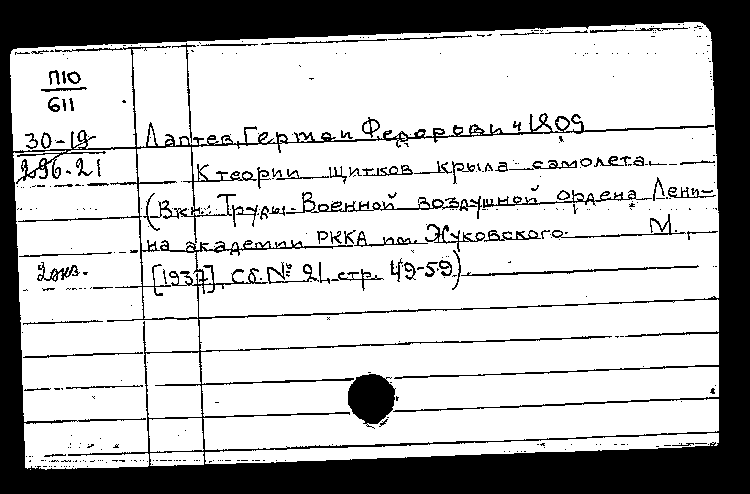 П10
611
30-19
296-21
Лаптев, Герман Федорович 1909
К теории щитков крыла самолета.
(В кн: Труды Военной воздушной ордена Лени-
на академии РККА им. Жуковского. М.,
[1937], Сб. № 21, стр. 49-59).
2 экз.